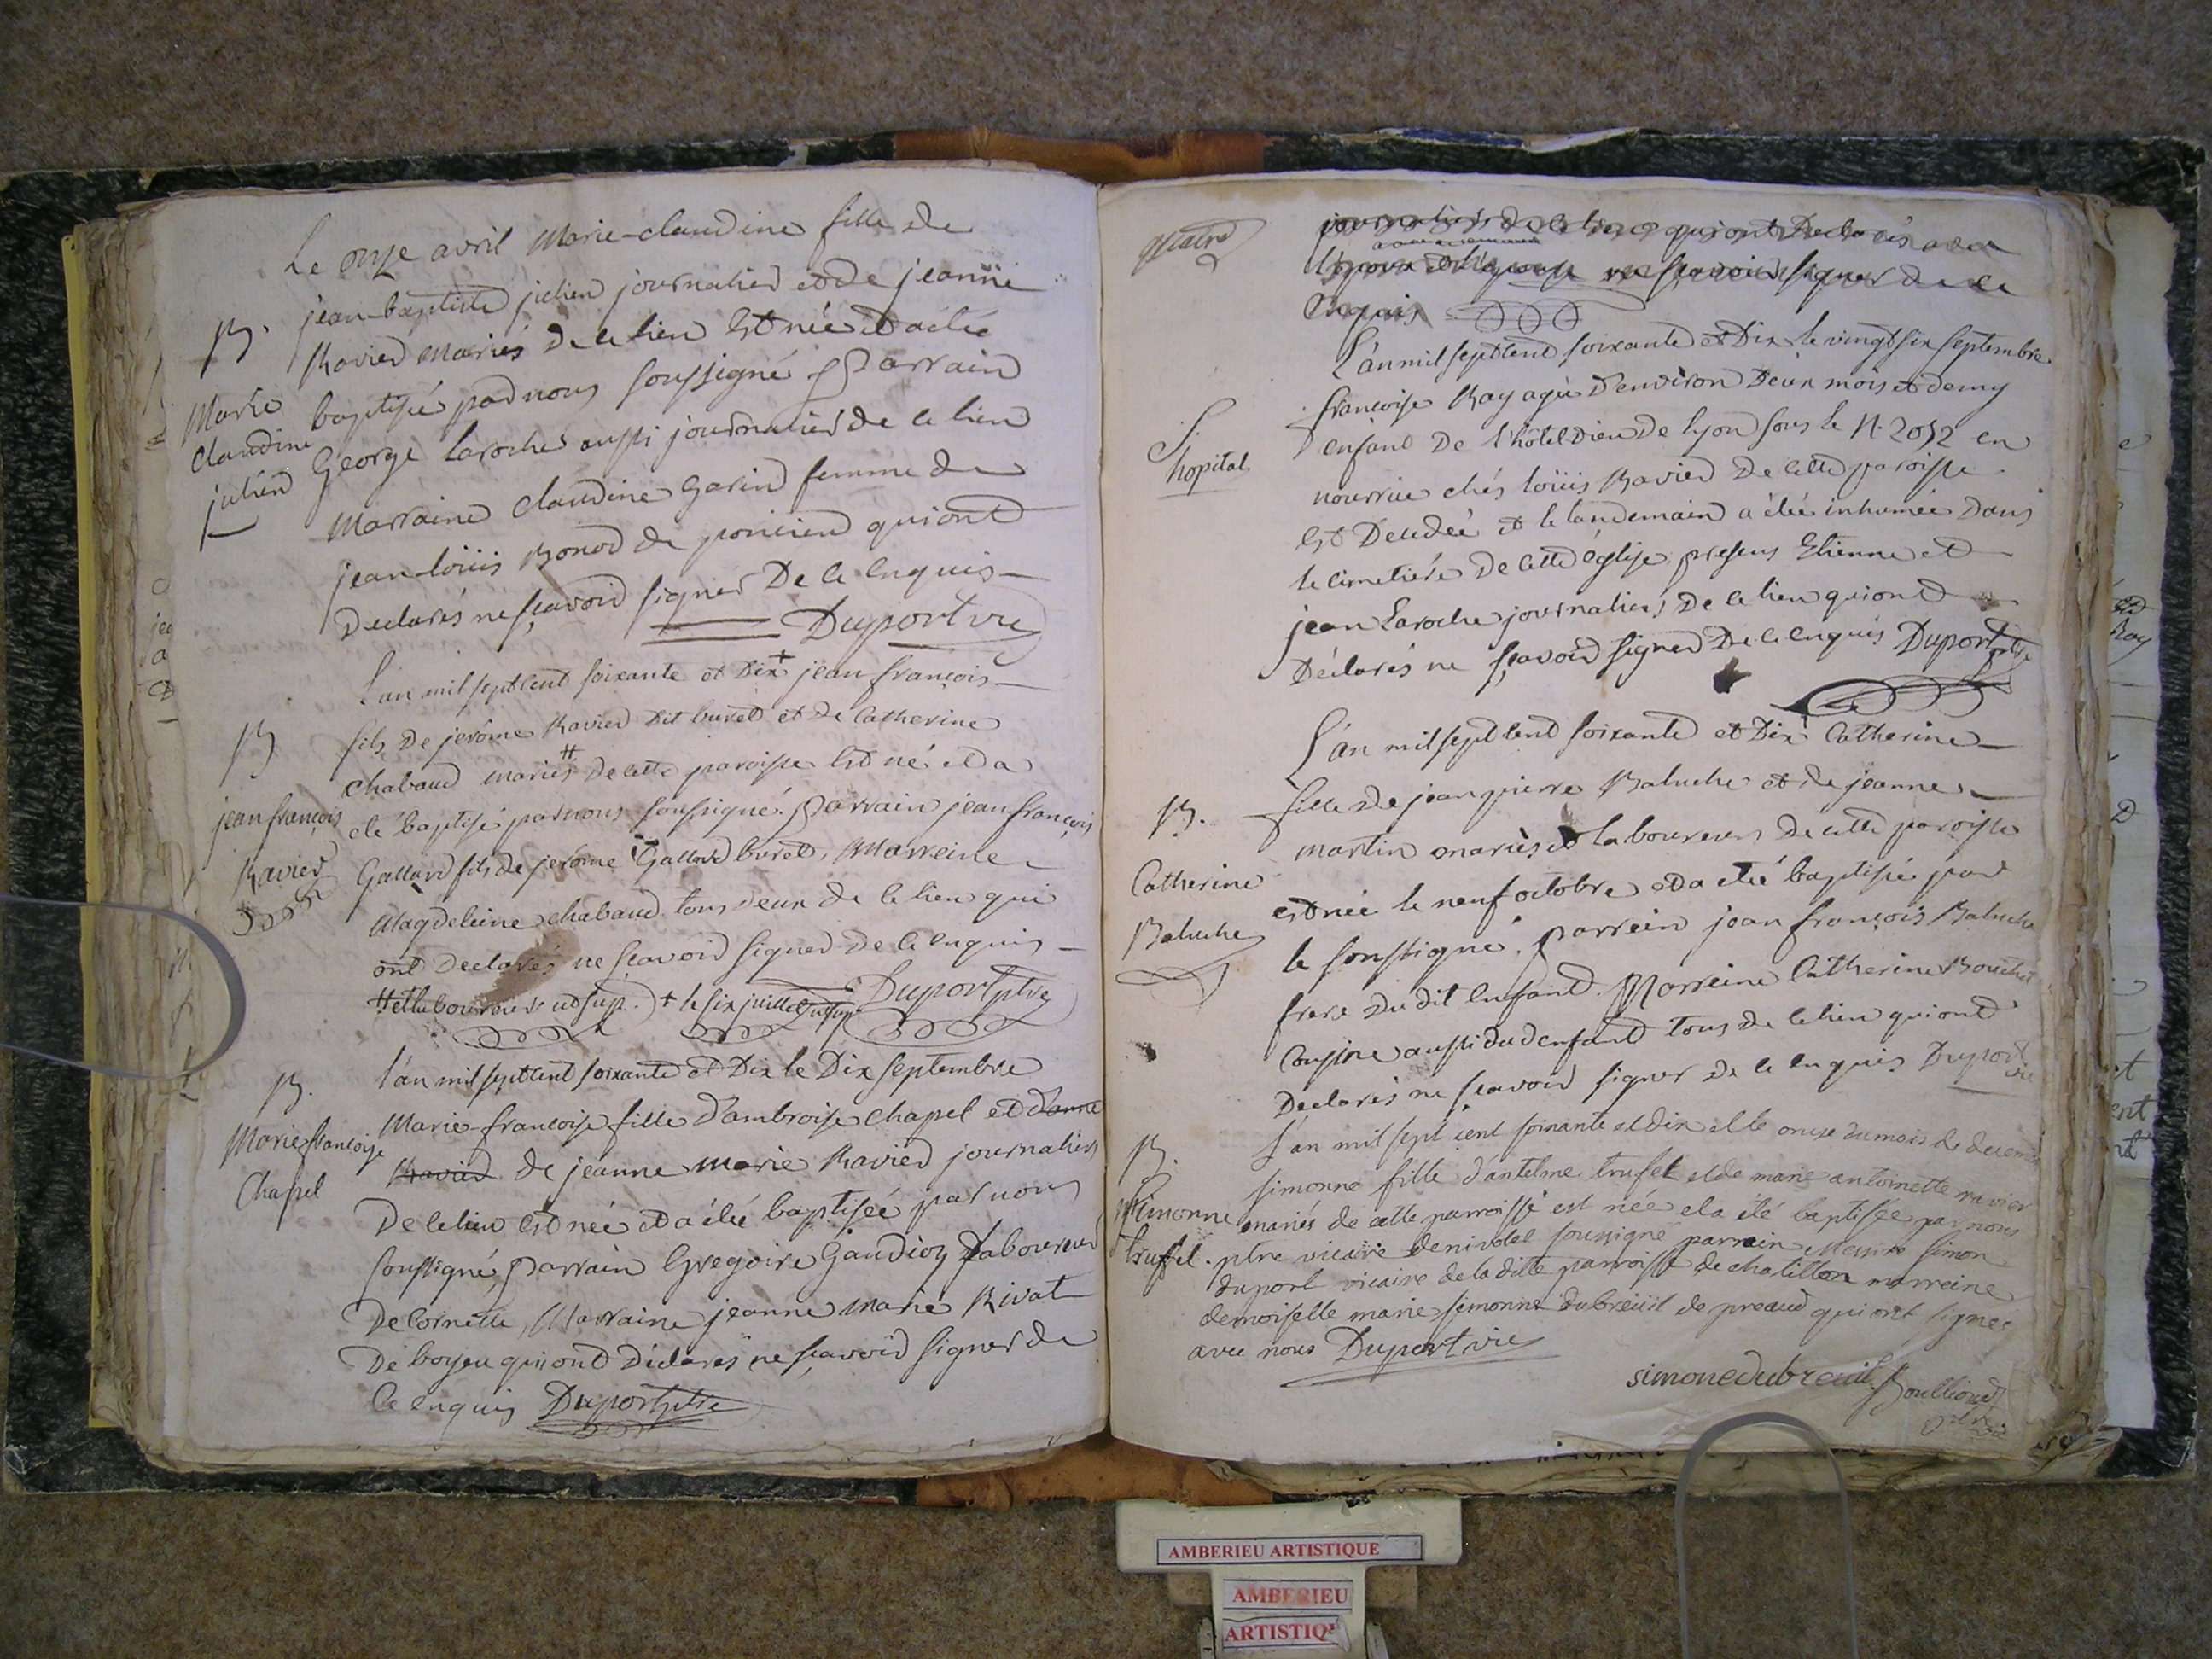 Le onze avril Marie-claudine fille de
jean-baptiste julien journalier et de jeanne
B.
Ravier mariés de ce lieu Est née et a été
Marie
claudine
julien
baptisée par nous soussigné Parrain
George Laroche aussi journalier de ce lieu
Marraine Claudine Garin femme de
jean-loüis Bonod de poncieu qui ont
Declarés ne sçavoir signer De ce enquis
Duport vic
L'an mil sept cent soixante et Dix + jean françois
B
fils De jerôme Ravier dit buret et de Catherine
chabaud mariés # de cette paroisse Est né et a
jean françois
Ravier
eté baptisé par nous soussigné. Parrain jean françois
Galland fils de jerôme Galland buret, Marreine
Magdeleine chabaud tous deux de ce lieu qui
ont Declarés ne sçavoir signer De ce enquis
# et laboureurs ut sup. + le six juillet ut sup. Duport ptre
B.
l'an mil sept cent soixante et Dix le Dix septembre
Marie françoise
Chapel
Marie-francoise fille d'ambroise Chapel et d'anne
Ravier de jeanne marie Ravier journaliers
De ce lieu Est née et a été baptisée par nous
soussigné, Parrain Gregoire Gaudion Laboureur
De Cornelle, Marraine jeanne marie Rivat
De boyeu qui ont Déclarés ne sçavoir signer de
Ce enquis Duport ptre
quatre
journaliers de ce lieu qui ont Declarés
ne sçavoir signer de ce
Enquis
L'an mil sept cent soixante et Dix le vingt six septembre
francoise Ray agée D'environ Deux mois et demy
S.
hopital
enfant De l'hôtel Dieu De lyon sous le N. 2052 en
nourrice chés loüis Ravier De cette paroisse
Est Decedée et le landemain a été inhumée Dans
le cimetiére De cette église presens Etienne et
jean Laroche journaliers De ce lieu qui ont
Déclarés ne sçavoir signer De ce enquis Duport ptre
L'an mil sept cent soixante et Dix Catherine
B.
fille de jean pierre Baluche et de jeanne
martin mariès et laboureurs De cette paroisse
Catherine
Baluche
est née le neuf octobre et a été baptisée par
le soussigné. parrein jean françois Baluche
frere du dit enfant. Marreine Catherine Bouchet
Cousine aussi dud enfant tous de ce lieu qui ont
Declarés ne sçavoir signer de ce enquis Duport vic
B.
L'an mil sept cent soixante et dix et le onze du mois de decem
simonne fille d'antelme trufel et de marie antoinette ravier
Simonne
truffel.
mariés de cette parroisse est née et a été baptisée par nous
ptre vicaire soussigné parrein Messire simon
duport vicaire de la ditte parroisse de chatillon marreine
demoiselle marie simonne dubreüil de preaud qui ont signes
avec nous Duport vic
simone dubreuil
AMBERIEU ARTISTIQUE
AMBERIEU
ARTISTIQ